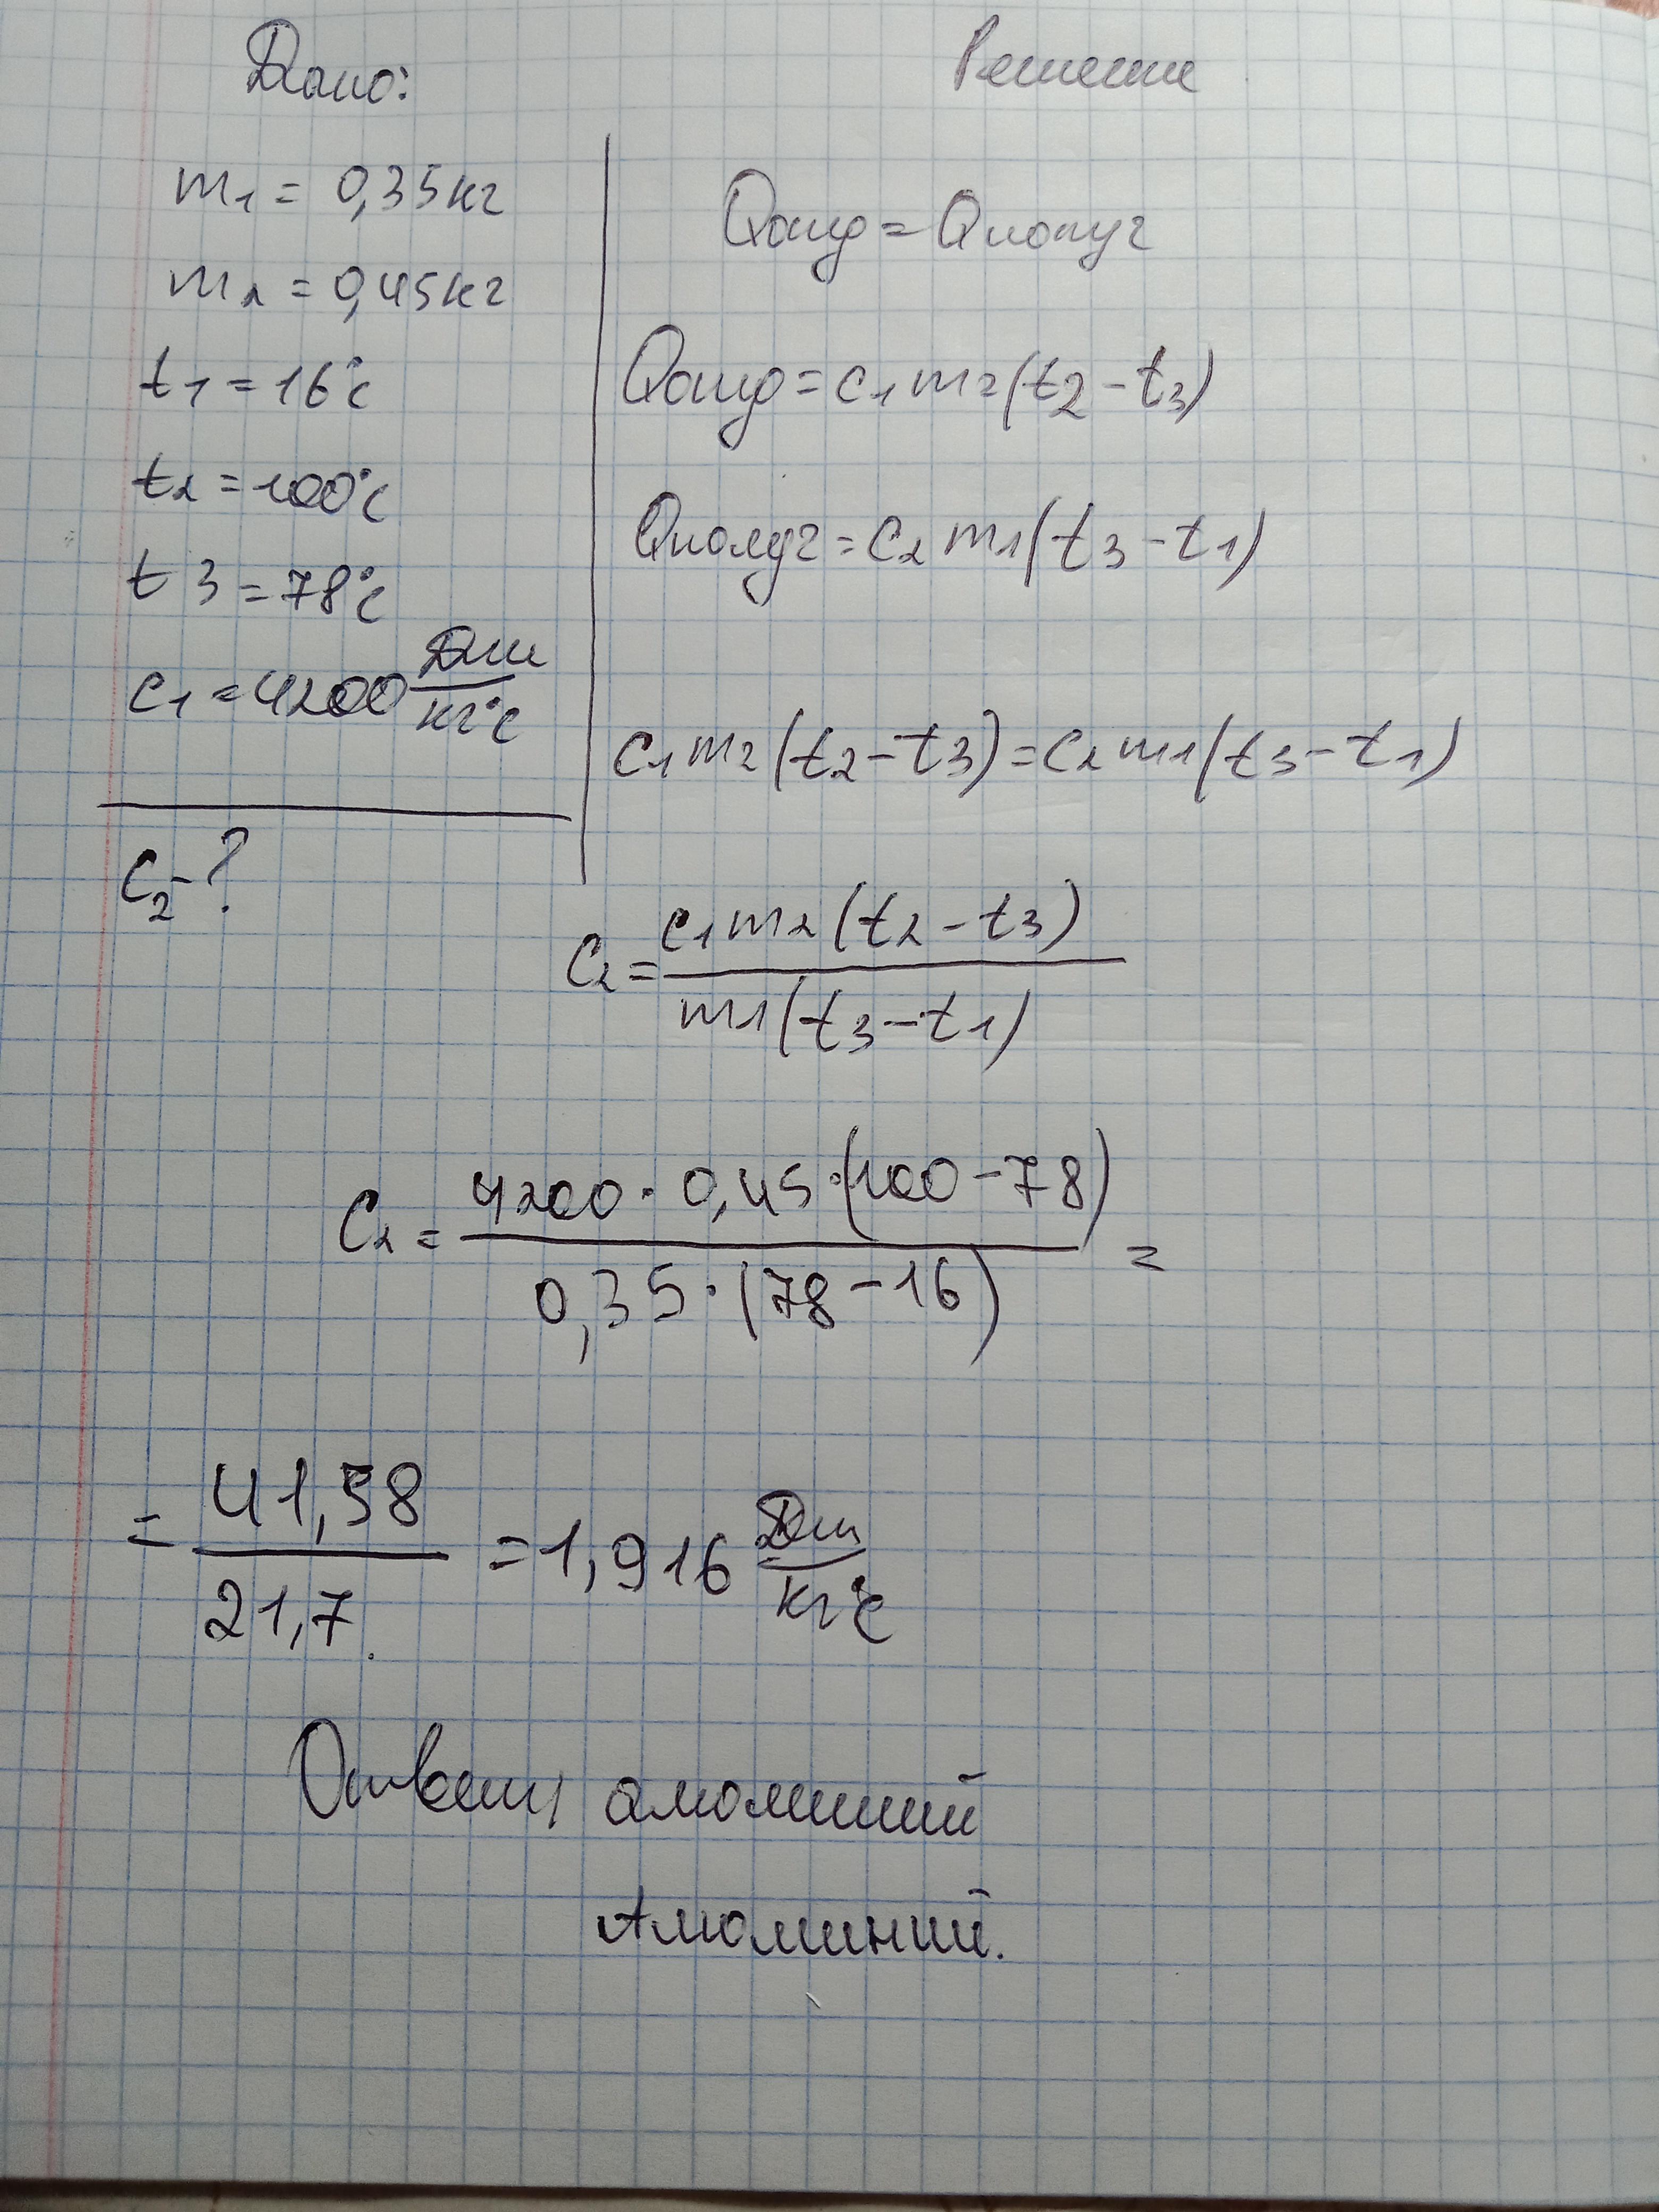 Дано:
m1 = 0,35кг
m2 = 0,45кг
t1 = 16°с
t2 = 100°с
t3 = 78°с
c1 = 4200 Дж/кг°с
C2 - ?
Решение
Qотд = Qполуч
Qотд = c1 m2 (t2 - t3)
Qполуч = c2 m1 (t3 - t1)
c1 m2 (t2 - t3) = c2 m1 (t3 - t1)
C2 = c1 m2 (t2 - t3) / m1 (t3 - t1)
C2 = 4200 · 0,45 · (100 - 78) / 0,35 · (78 - 16) =
= 41,58 / 21,7 = 1,916 Дж/кг°с
Ответ: алюминий
Алюминий.